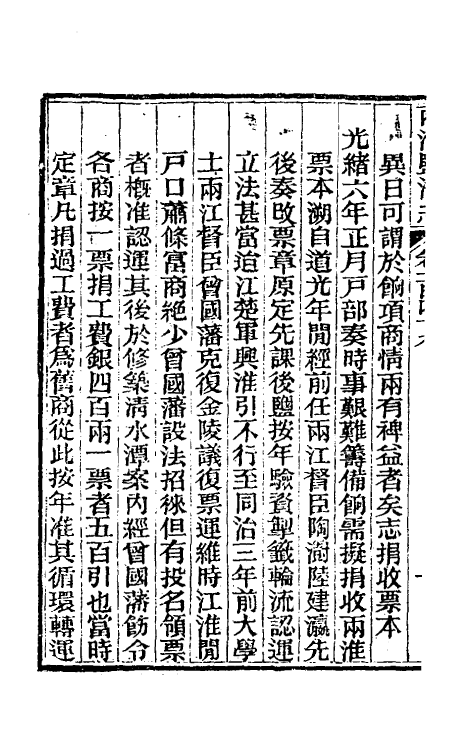 異日可謂於餉項商情兩有裨益者矣志捐收票本
光緒六年正月戶部奏時事艱難籌備餉需擬捐收兩淮
票本溯自道光年閒經前任兩江督臣陶澍陸建瀛先
後奏改票章原定先課後鹽按年驗資掣籤輪流認運
立法甚當迨江楚軍興淮引不行至同治三年前大學
士兩江督臣曾國藩克復金陵議復票運維時江淮閒
戶口蕭條富商絶少曾國藩設法招徠但有投名領票
者槪准認運其後於修築淸水潭案內經曾國藩飭令
各商按一票捐工費銀四百兩一票者五百引也當時
定章凡捐過工費者爲舊商從此按年准其循環轉運